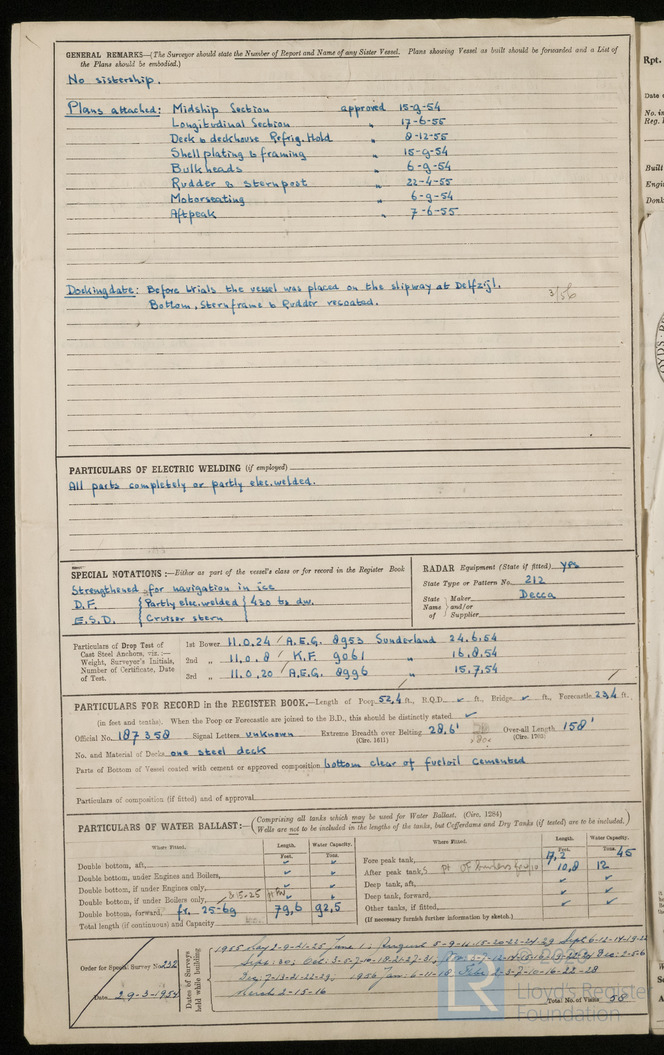 GENERAL REMARKS—(The Surveyor should state the Number of Report and Name of any Sister Vessel. Plans showing Vessel as built should be forwarded and a List of
the Plans should be embodied.)
No sistership.
Plans attached: Midship Section approved 15-9-54
Longitudinal Section " 17-6-55
Deck & deckhouse Refrig. Hold " 8-12-55
Shell plating & framing " 15-9-54
Bulkheads " 6-9-54
Rudder & sternpost " 22-4-55
Motorseating " 6-9-54
Aftpeak " 7-6-55
Dockingdate: Before trials the vessel was placed on the slipway at Delfzijl. 3/56
Bottom, Sternframe & Rudder recoated.
PARTICULARS OF ELECTRIC WELDING (if employed)
All parts completely or partly elec. welded.
SPECIAL NOTATIONS :—Either as part of the vessel's class or for record in the Register Book
Strengthened for navigation in ice
D.F. { Partly elec. welded { 430 ts dw.
E.S.D. { Cruiser stern
RADAR Equipment (State if fitted) yes
State Type or Pattern No. 212
State Name of Maker and/or Supplier Decca
Particulars of Drop Test of Cast Steel Anchors, viz. :— Weight, Surveyor's Initials, Number of Certificate, Date of Test.
1st Bower 11.0.24 / A.E.G. 8953 Sunderland 24.6.54
2nd " 11.0.8 / K.F. 9061 " 16.8.54
3rd " 11.0.20 / A.E.G. 8996 " 15.7.54
PARTICULARS FOR RECORD in the REGISTER BOOK.—Length of Poop 52,4 ft., R.Q.D. ✓ ft., Bridge ✓ ft., Forecastle 23,4 ft.
(in feet and tenths). When the Poop or Forecastle are joined to the B.D., this should be distinctly stated ✓
Official No. 187358 Signal Letters unknown Extreme Breadth over Belting 28,6' Over-all Length 158'
(Circ. 1611) (Circ. 1703)
No. and Material of Decks one steel deck
Parts of Bottom of Vessel coated with cement or approved composition bottom clear of fueloil cemented
Particulars of composition (if fitted) and of approval
PARTICULARS OF WATER BALLAST:—(Comprising all tanks which may be used for Water Ballast. (Circ. 1284)
Wells are not to be included in the lengths of the tanks, but Cofferdams and Dry Tanks (if tested) are to be included.)
Where Fitted. Length. Water Capacity. Where Fitted. Length. Water Capacity.
Feet. Tons. Feet. Tons.
Double bottom, aft, ✓ ✓
Double bottom, under Engines and Boilers, ✓ ✓
Double bottom, if under Engines only, ✓ ✓
Double bottom, if under Boilers only, ✓ ✓
Double bottom, forward, fr. 25-69 79,6 92,5
Total length (continuous) and Capacity
Fore peak tank, 17,2 45
After peak tank, 10,8 12
Deep tank, aft, ✓ ✓
Deep tank, forward, ✓ ✓
Other tanks, if fitted, ✓ ✓
(If necessary furnish further information by sketch.)
Order for Special Survey No. 232
Date 29-3-1954
Dates of Surveys held while building
1955 May 2-9-21-25 June 1; August 5-9-11-15-20-23-24-29 Sept 6-12-14-19-22
Dec 7-13-21-22-29; 1956 Jan: 6-11-18 Febr: 2-3-7-10-16-22-28
March 2-15-16
Total No. of Visits 58
LR
© 2020
Lloyd's Register
Foundation
Rpt.
Date
No. in
Reg.
Built
Engi
Donk